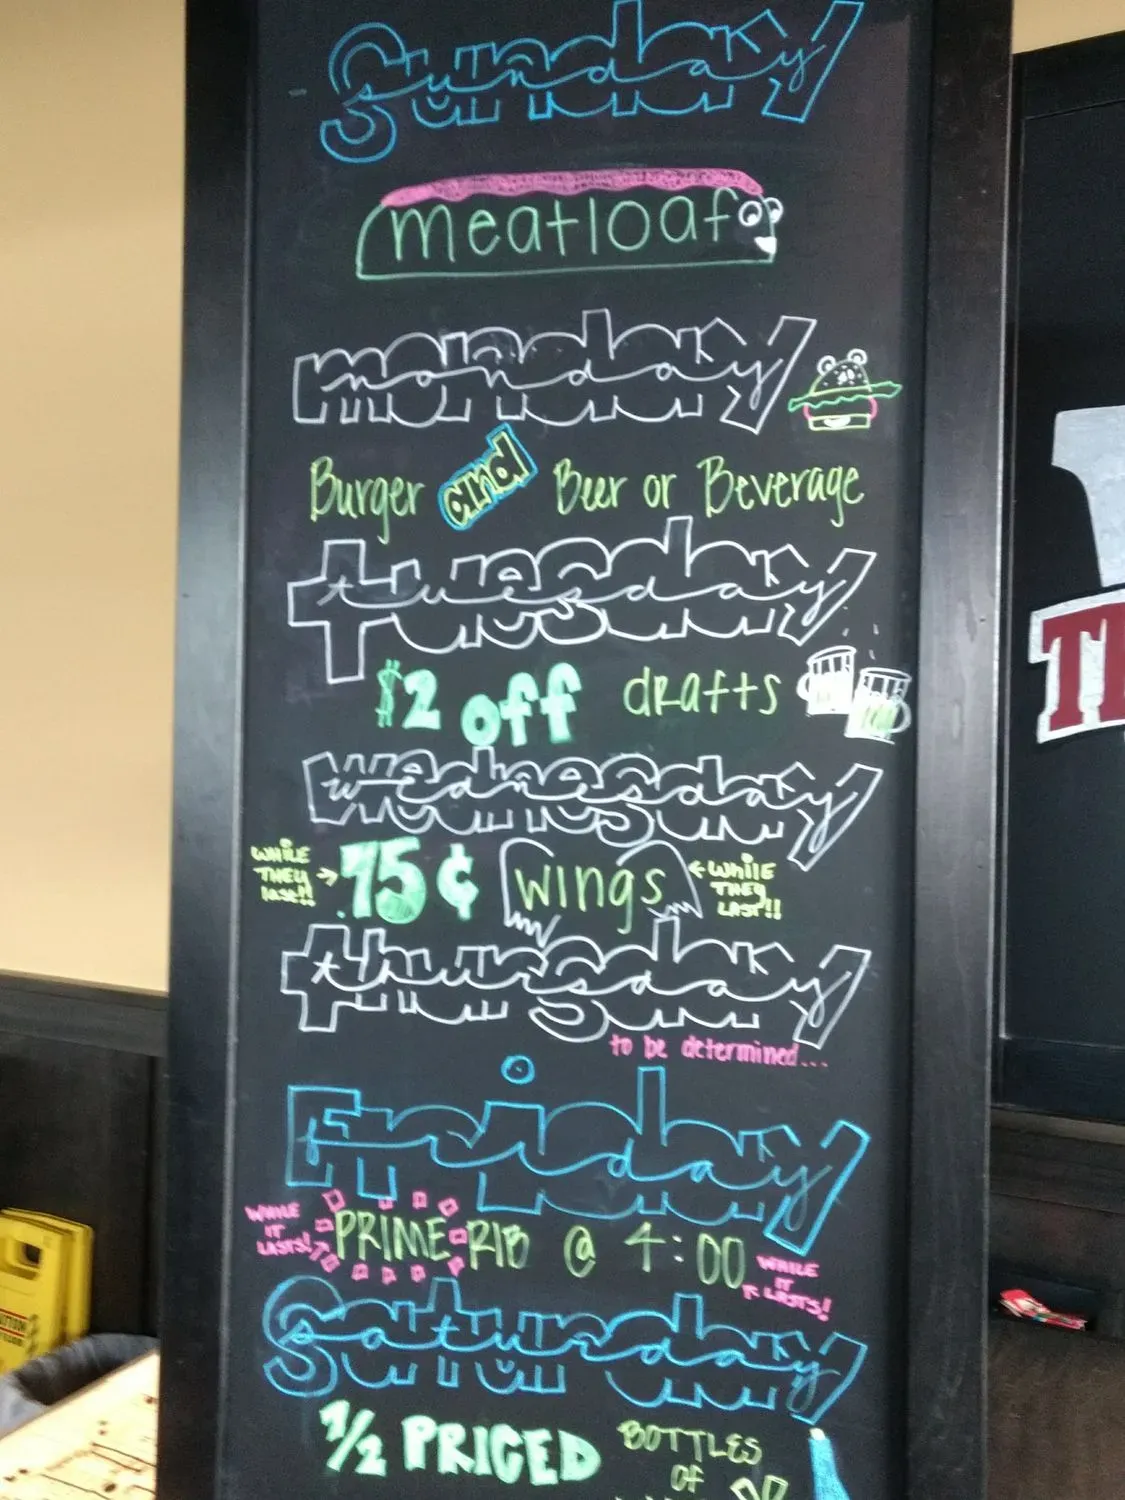 Sunday
meatloaf
monday
Burger and Beer or Beverage
tuesday
$2 off drafts
wednesday
WHILE THEY LAST!! 75¢ wings WHILE THEY LAST!!
thursday
to be determined...
Friday
WHILE IT LASTS! PRIME RIB @ 4:00 WHILE IT LASTS!
Saturday
1/2 PRICED BOTTLES
OF